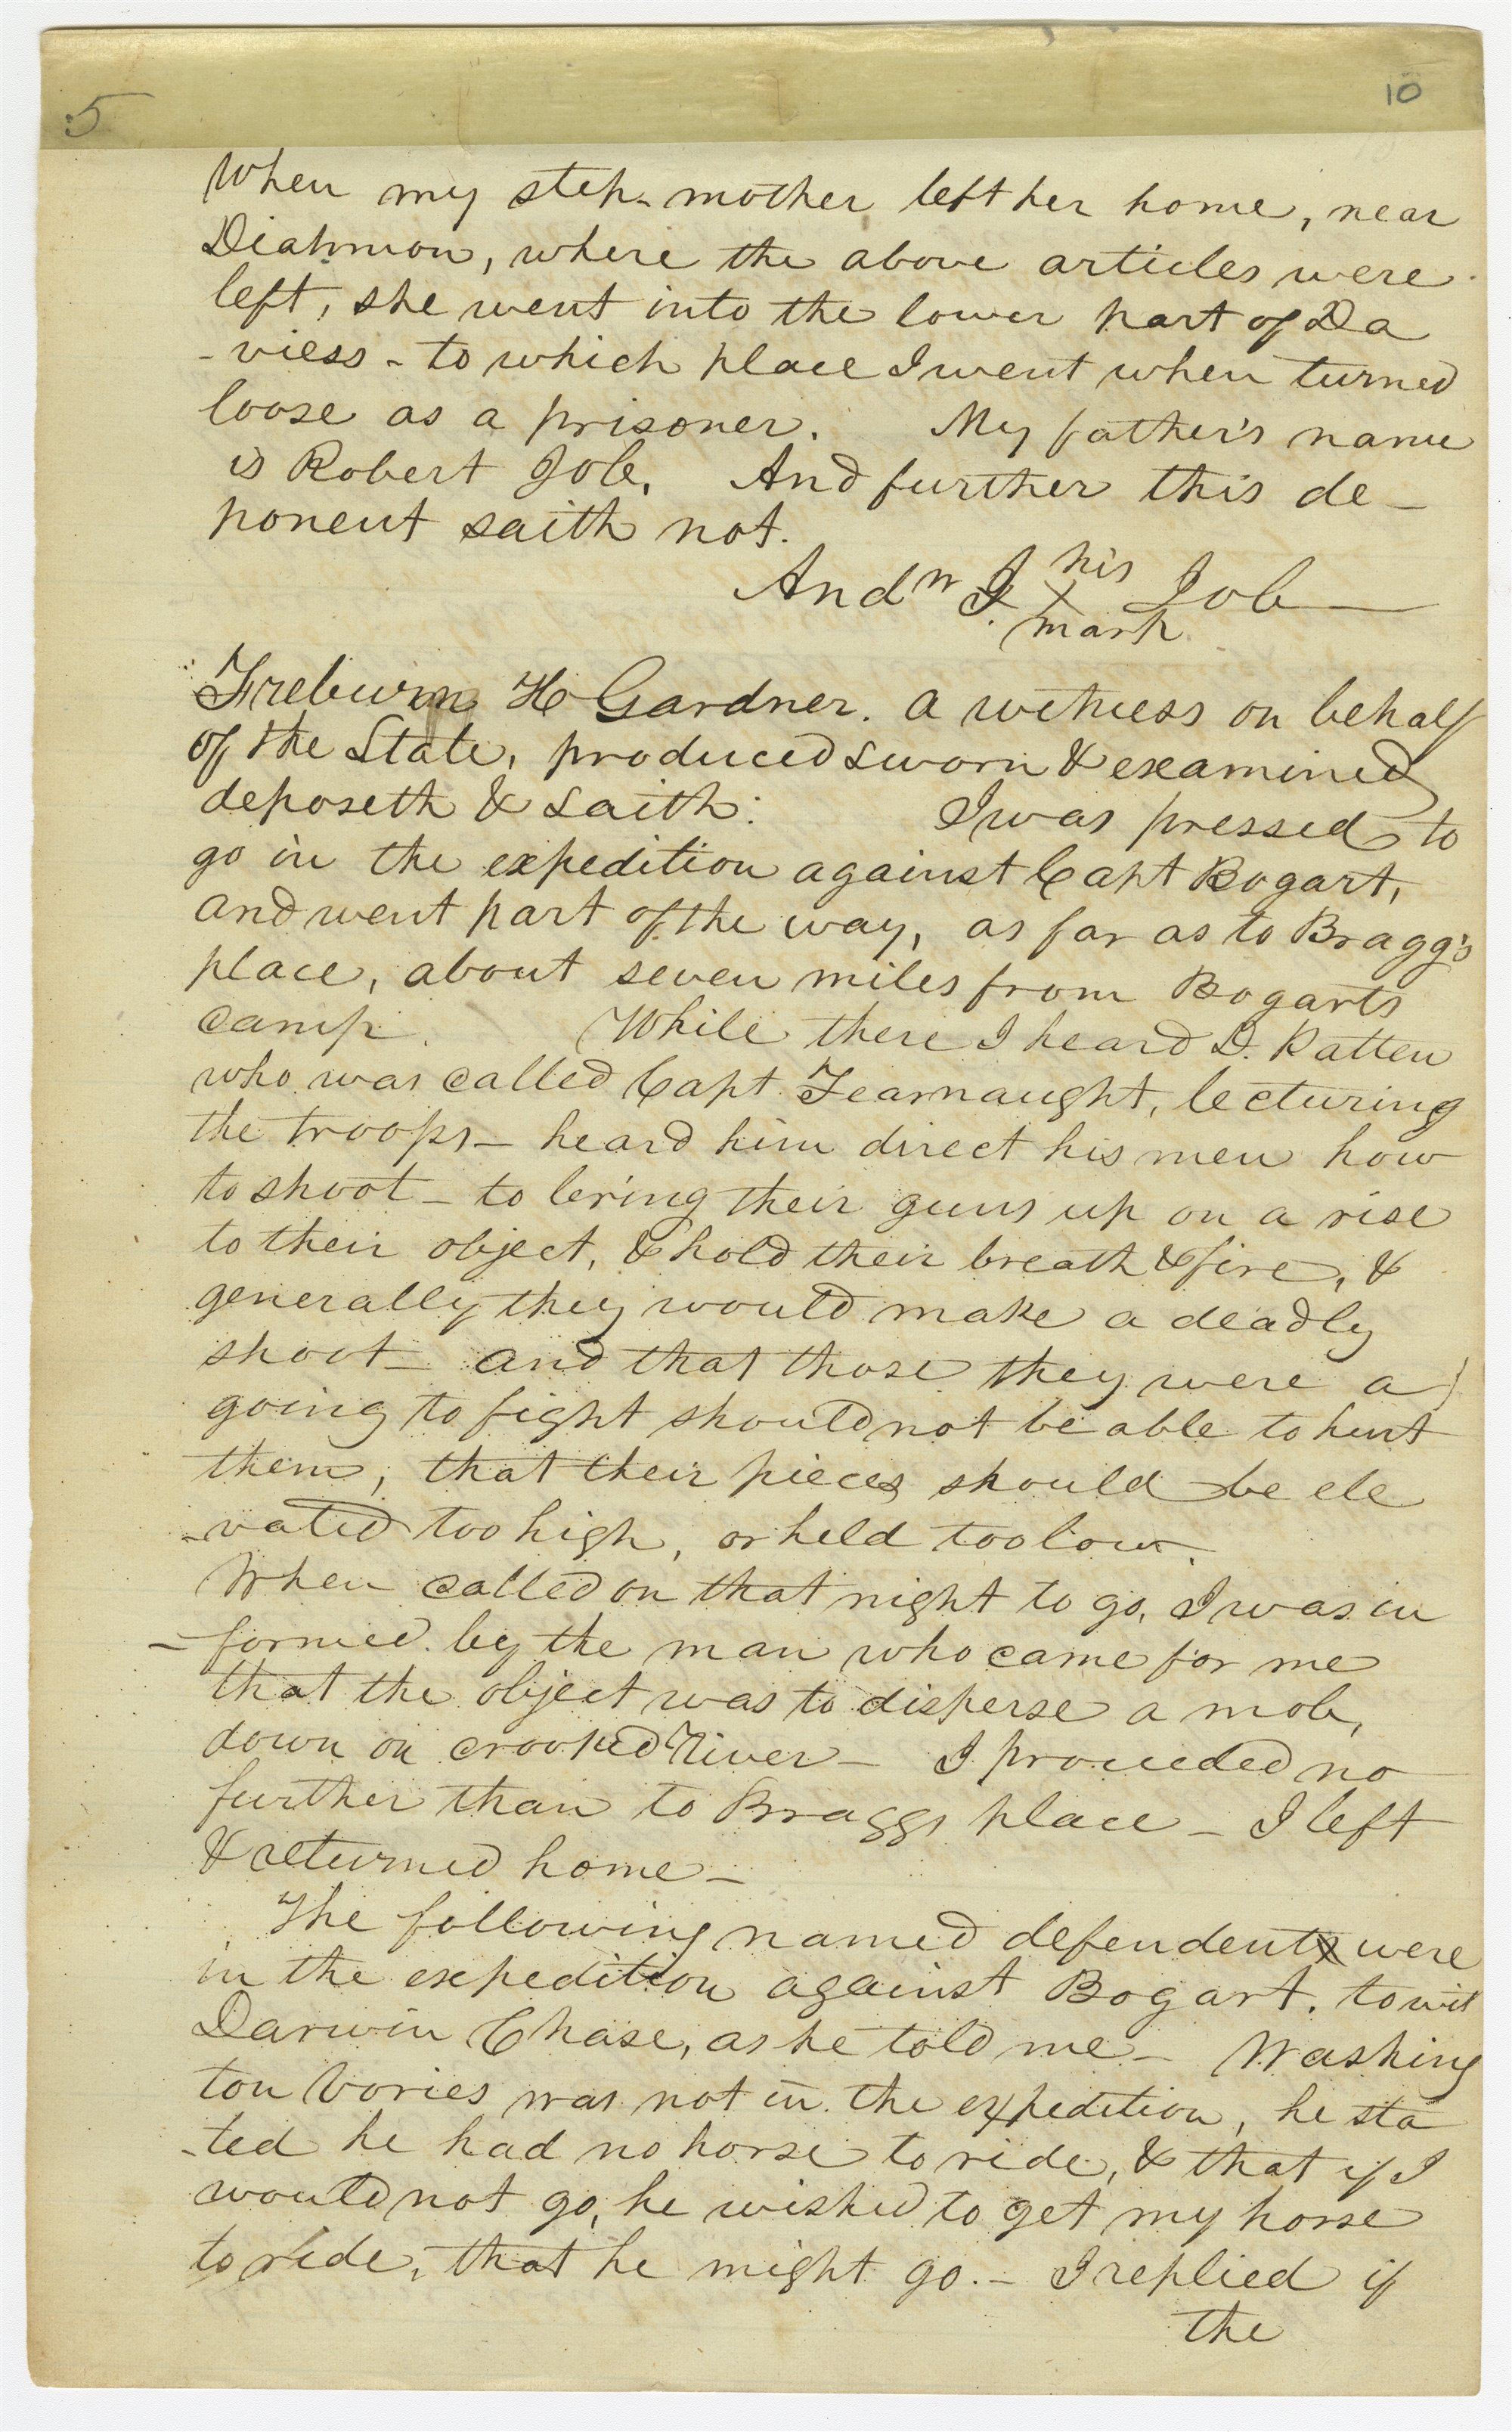 5 10
When my step-mother left her home, near
Diahmon, where the above articles were
left, she went into the lower part of Da
-viess - to which place I went when turned
loose as a prisoner. My father's name
is Robert Job. And further this de-
ponent saith not.
his
Andw J. X Job
mark
Frelurin H Gardner. a witness on behalf
of the State, produced sworn & examined
deposeth & saith: I was pressed to
go in the expedition against Capt Bogart,
and went part of the way, as far as to Bragg's
place, about seven miles from Bogarts
camp. While there I heard D. Patten
who was called Capt Fearnaught, lecturing
the troops - heard him direct his men how
to shoot - to bring their guns up on a rise
to their object, & hold their breath & fire, &
generally they would make a deadly
shoot - and that those they were a
going to fight should not be able to hurt
them; that their pieces should be ele
-vated too high, or held too low.
When called on that night to go, I was in
-formed by the man who came for me
that the object was to disperse a mob,
down on crooked River - I proceeded no
further than to Braggs place - I left
& returned home -
The following named defendents were
in the expedition against Bogart. towit
Darwin Chase, as he told me - Washing
ton Vories was not in the expedition, he sta
-ted he had no horse to ride, & that if I
would not go, he wished to get my horse
to ride, that he might go. - I replied if
the